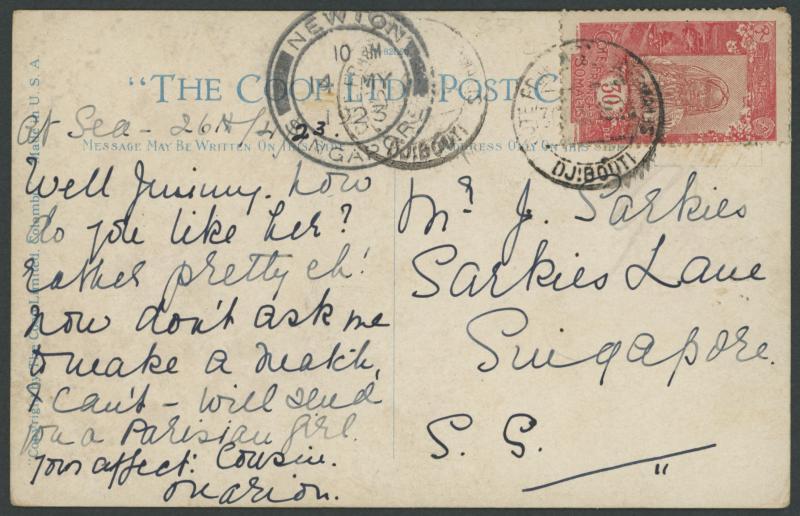 NEWTON
10 AM
14 MY
192
SINGAPORE
DJIBOUTI
DJIBOUTI
30
"THE COOP LTD. POST C
MESSAGE MAY BE WRITTEN ON THIS SIDE
ADDRESS ONLY ON THIS SIDE
Made in U. S. A.
At Sea - 26th/4/23.
Well Jimmy, how
do you like her?
Rather pretty eh!
now don't ask me
to make a match,
I can't - Will send
you a Parisian girl.
Your affect: Cousin.
Marion.
Mr. J. Sarkies
Sarkies Lane
Singapore.
S. S. "